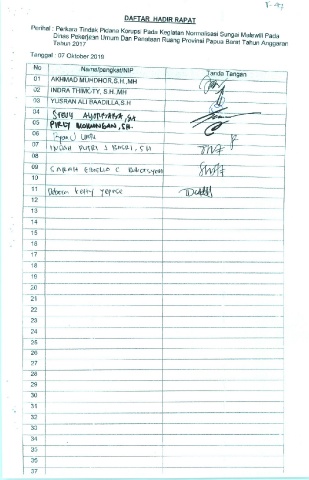 DAFTAR HADIR RAPAT
Perihal : Perkara Tindak Pidana Korupsi Pada Kegiatan Normalisasi Sungai Malawili Pada
Dinas Pekerjaan Umum Dan Penataan Ruang Provinsi Papua Barat Tahun Anggaran
Tahun 2017
Tanggal : 07 Oktober 2019
No Nama/pangkat/NIP Tanda Tangan
01 AKHMAD MUHDHOR, S.H, MH
02 INDRA THIMOTY, S.H. MH
03 YUSRAN ALI BAADILLA, S.H
04 STEVY
05 PIRLY MOMONGAN, SH.
06
07 INDAH PUTRI J. BASRI, SH
08
09 SARAH
10
11 Debora
12
13
14
15
16
17
18
19
20
21
22
23
24
25
26
27
28
29
30
31
32
33
34
35
36
37